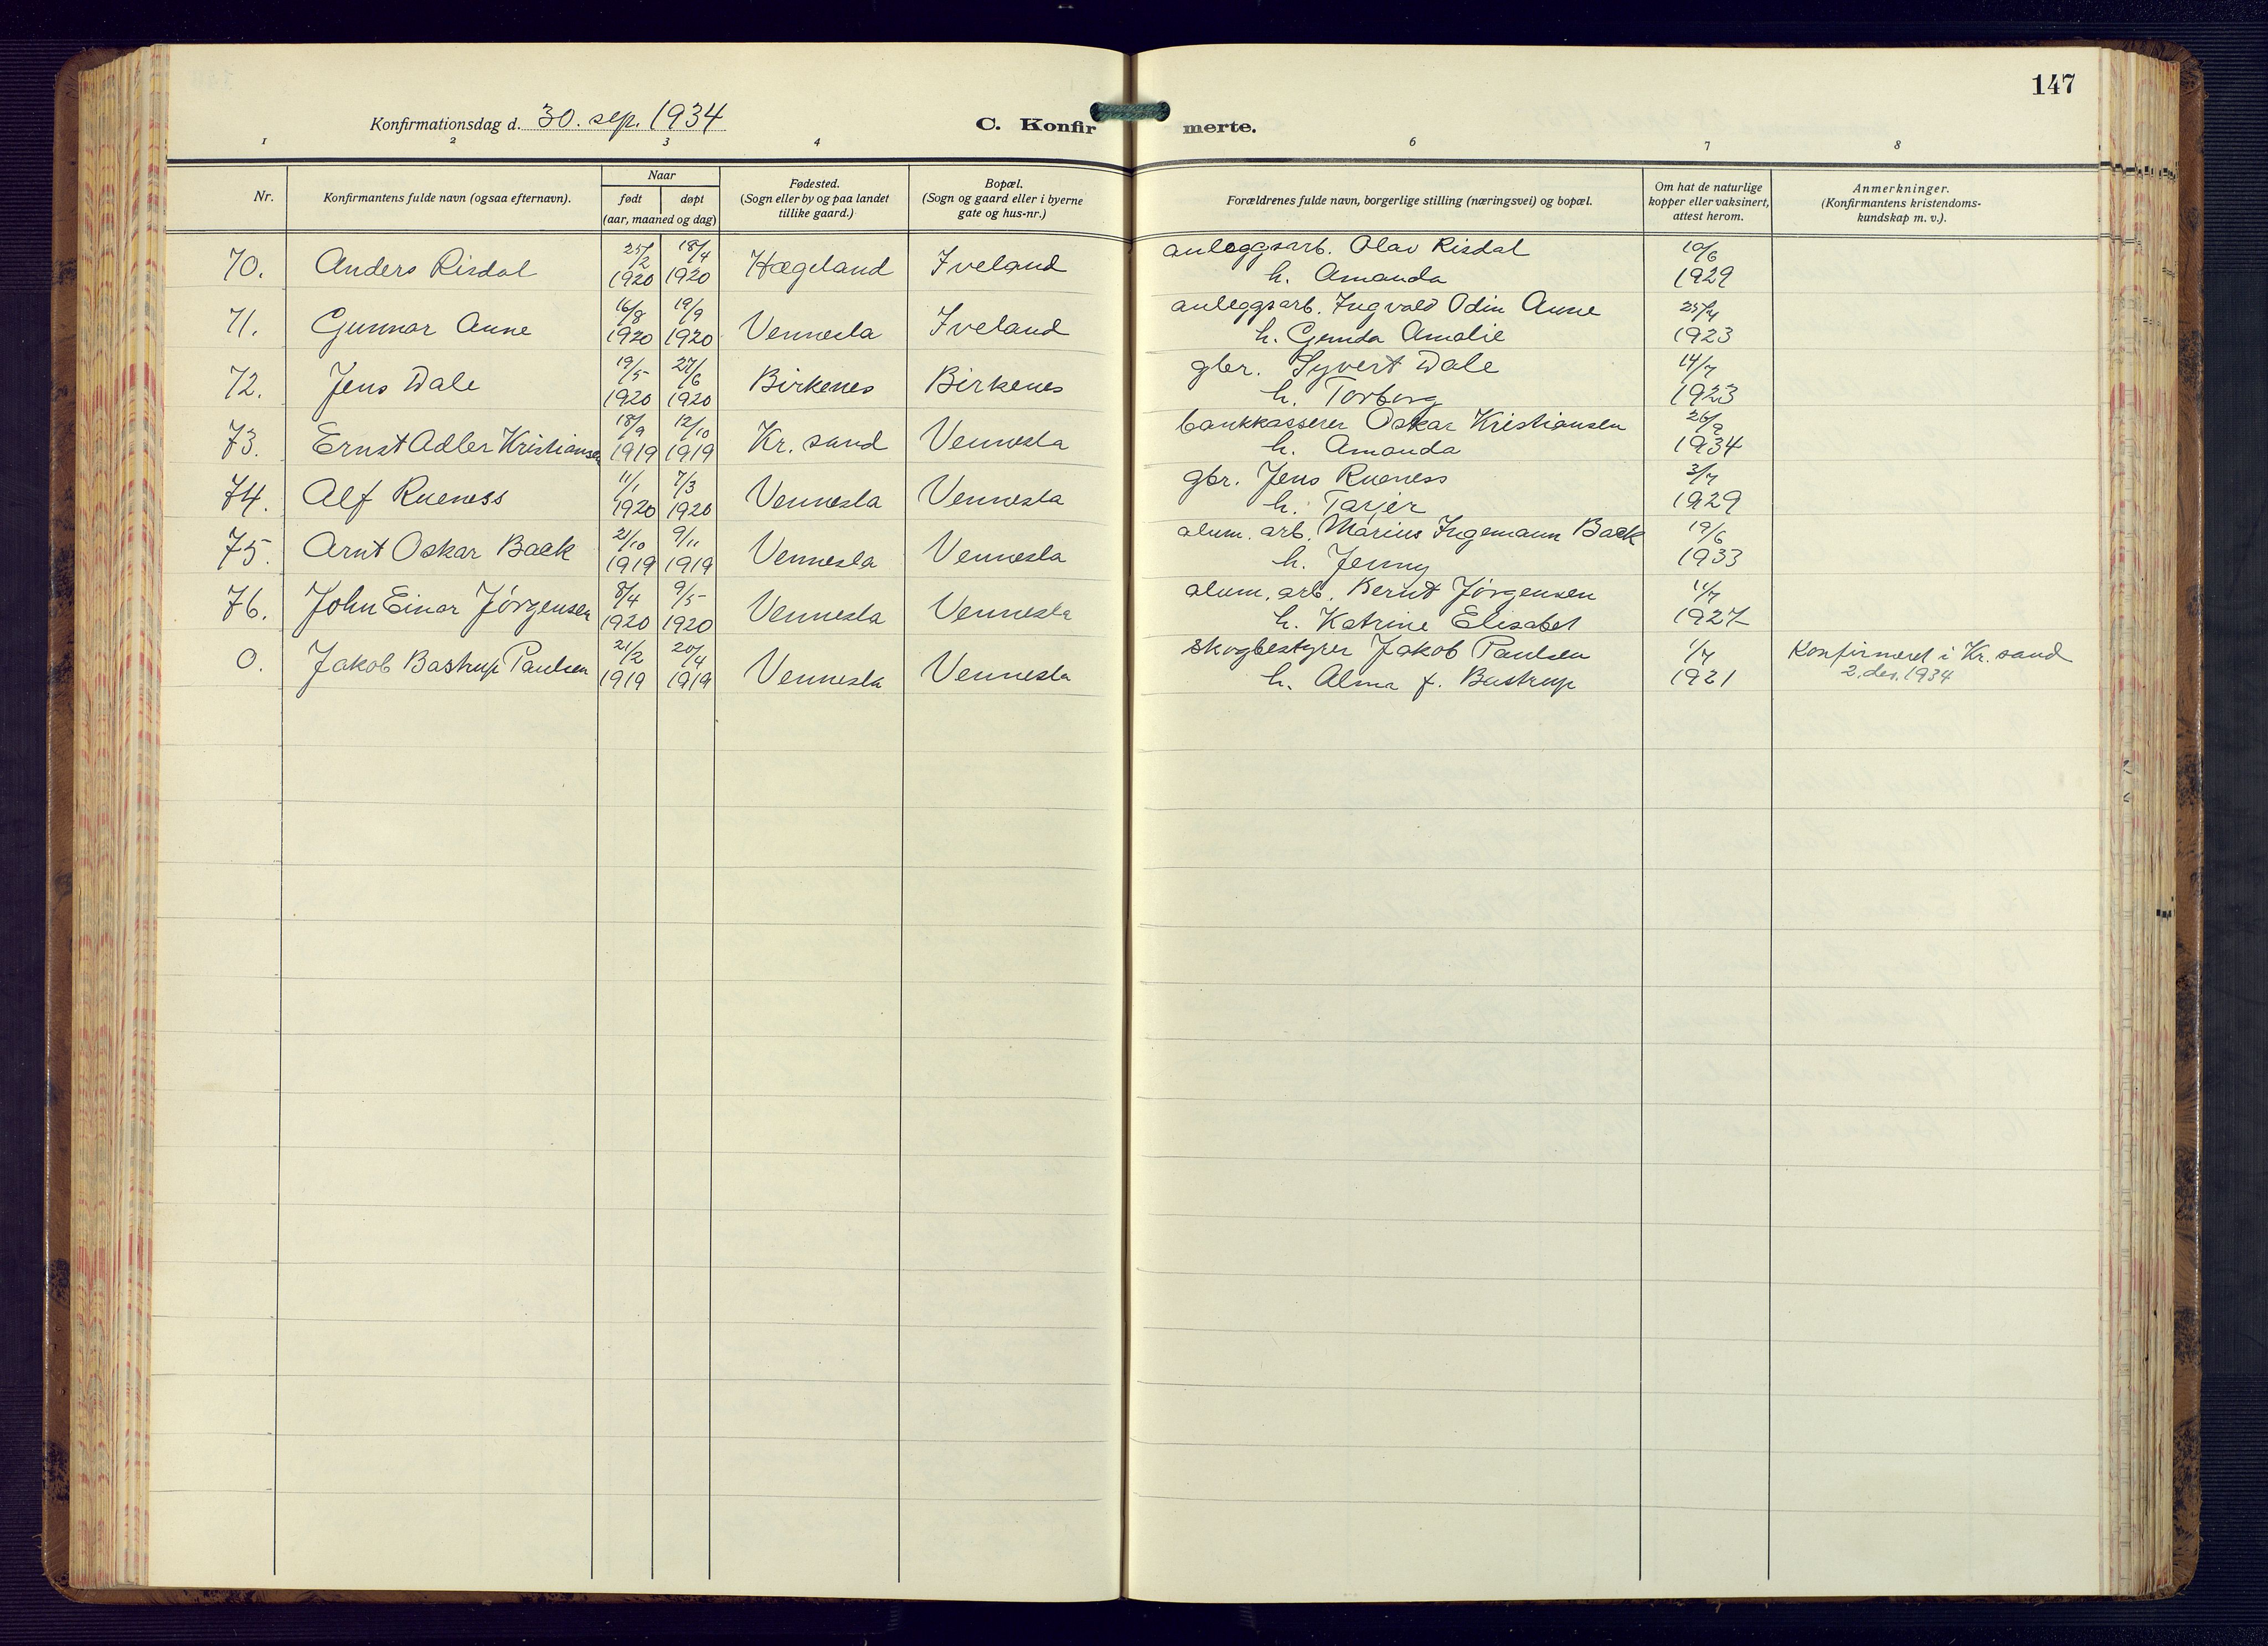 147
Konfirmationsdag d. 30. sep. 1934
C. Konfirmerte.
1 2 3 4 6 7 8
Nr.
Konfirmantens fulde navn (ogsaa efternavn).
Naar
født døpt
(aar, maaned og dag)
Fødested.
(Sogn eller by og paa landet
tillike gaard.)
Bopæl.
(Sogn og gaard eller i byerne
gate og hus-nr.)
Forældrenes fulde navn, borgerlige stilling (næringsvei) og bopæl.
Om hat de naturlige
kopper eller vaksinert,
attest herom.
Anmerkninger.
(Konfirmantens kristendoms-
kundskap m. v.).
25/2 18/4 anleggsarb. Olav Risdal 10/6
70. Anders Risdal 1920 1920 Hægeland Iveland h. Amanda 1929
16/8 19/9 anleggsarb. Ingvald Odin Aune 25/4
71. Gunnar Aune 1920 1920 Vennesla Iveland h. Gemda Amalie 1923
19/5 27/6 gbr. Syvert Dale 14/7
72. Jens Dale 1920 1920 Birkenes Birkenes h. Torborg 1923
18/9 12/10 bankkasserer Oskar Kristiansen 26/9
73. Ernst Adler Kristiansen 1919 1919 Kr. sand Vennesla h. Amanda 1934
11/1 7/3 gbr. Jens Rueness 3/7
74. Alf Rueness 1920 1920 Vennesla Vennesla h. Tarjer 1929
21/10 9/11 alum. arb. Marius Ingemann Baek 19/6
75. Arnt Oskar Baek 1919 1919 Vennesla Vennesla h. Jenny 1933
8/4 9/5 alum. arb. Bernt Jörgensen 11/7
76. John Einar Jörgensen 1920 1920 Vennesla Vennesla h. Katrine Elisabet 1927
21/2 20/4 skogbestyrer Jakob Paulsen 1/7 Konfirmeret i Kr. sand
0. Jakob Bastrup Paulsen 1919 1919 Vennesla Vennesla h. Alma f. Bastrup 1921 2. des. 1934